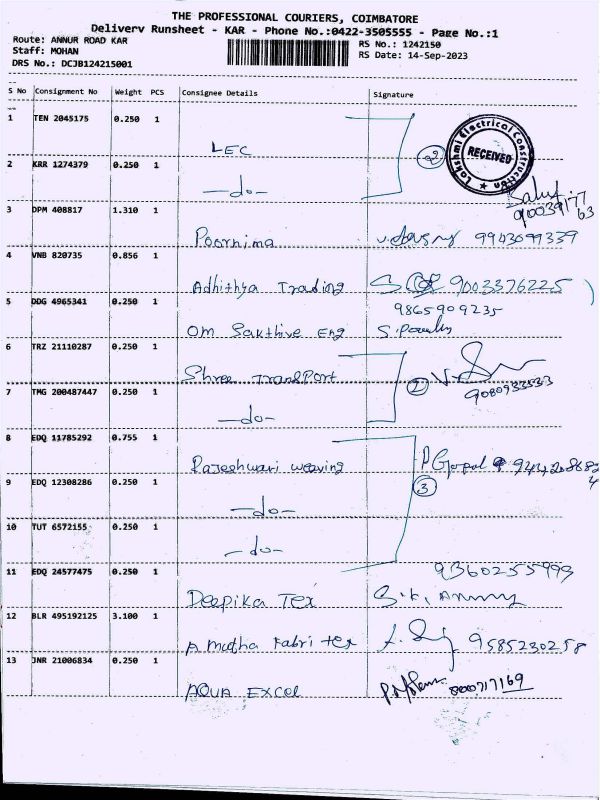 THE PROFESSIONAL COURIERS, COIMBATORE
Delivery Runsheet - KAR - Phone No.:0422-3505555 - Page No.:1
Route: ANNUR ROAD KAR
Staff: MOHAN
DRS No.: DCJB124215001
RS No.: 1242150
RS Date: 14-Sep-2023
S No Consignment No Weight PCS Consignee Details Signature
1 TEN 2045175 0.250 1
LEC
Lakshmi Electrical Construction
RECEIVED
2
2 KRR 1274379 0.250 1
-do-
3 DPM 408817 1.310 1
Poornima 9903099339
4 VNB 820735 0.856 1
Adhithya Trading 9003376225
5 DDG 4965341 0.250 1
9865909235
Om Sakthive Eng
6 TRZ 21110287 0.250 1
Shree Transport
2
9080933533
7 TMG 200487447 0.250 1
-do-
8 EDQ 11785292 0.755 1
Rajeshwari weaving P Gopal
3
9 EDQ 12308286 0.250 1
-do-
10 TUT 6572155 0.250 1
-do-
11 EDQ 24577475 0.250 1
9360255993
Deepika Tex
12 BLR 495192125 3.100 1
Amutha Fabri tex 9585230258
13 JNR 21006834 0.250 1
AQUA EXCEL